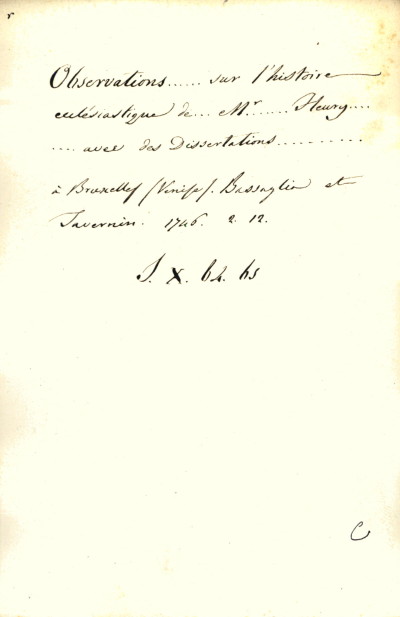 r
Observations...... sur l'histoire
eclésiastique de... Mr....... Fleury....
.... avec des Dissertations...........
à Bruxelles (Venise). Bassaglia et
Tavernin. 1746. 2. 12.
S. X. 64. 65
C